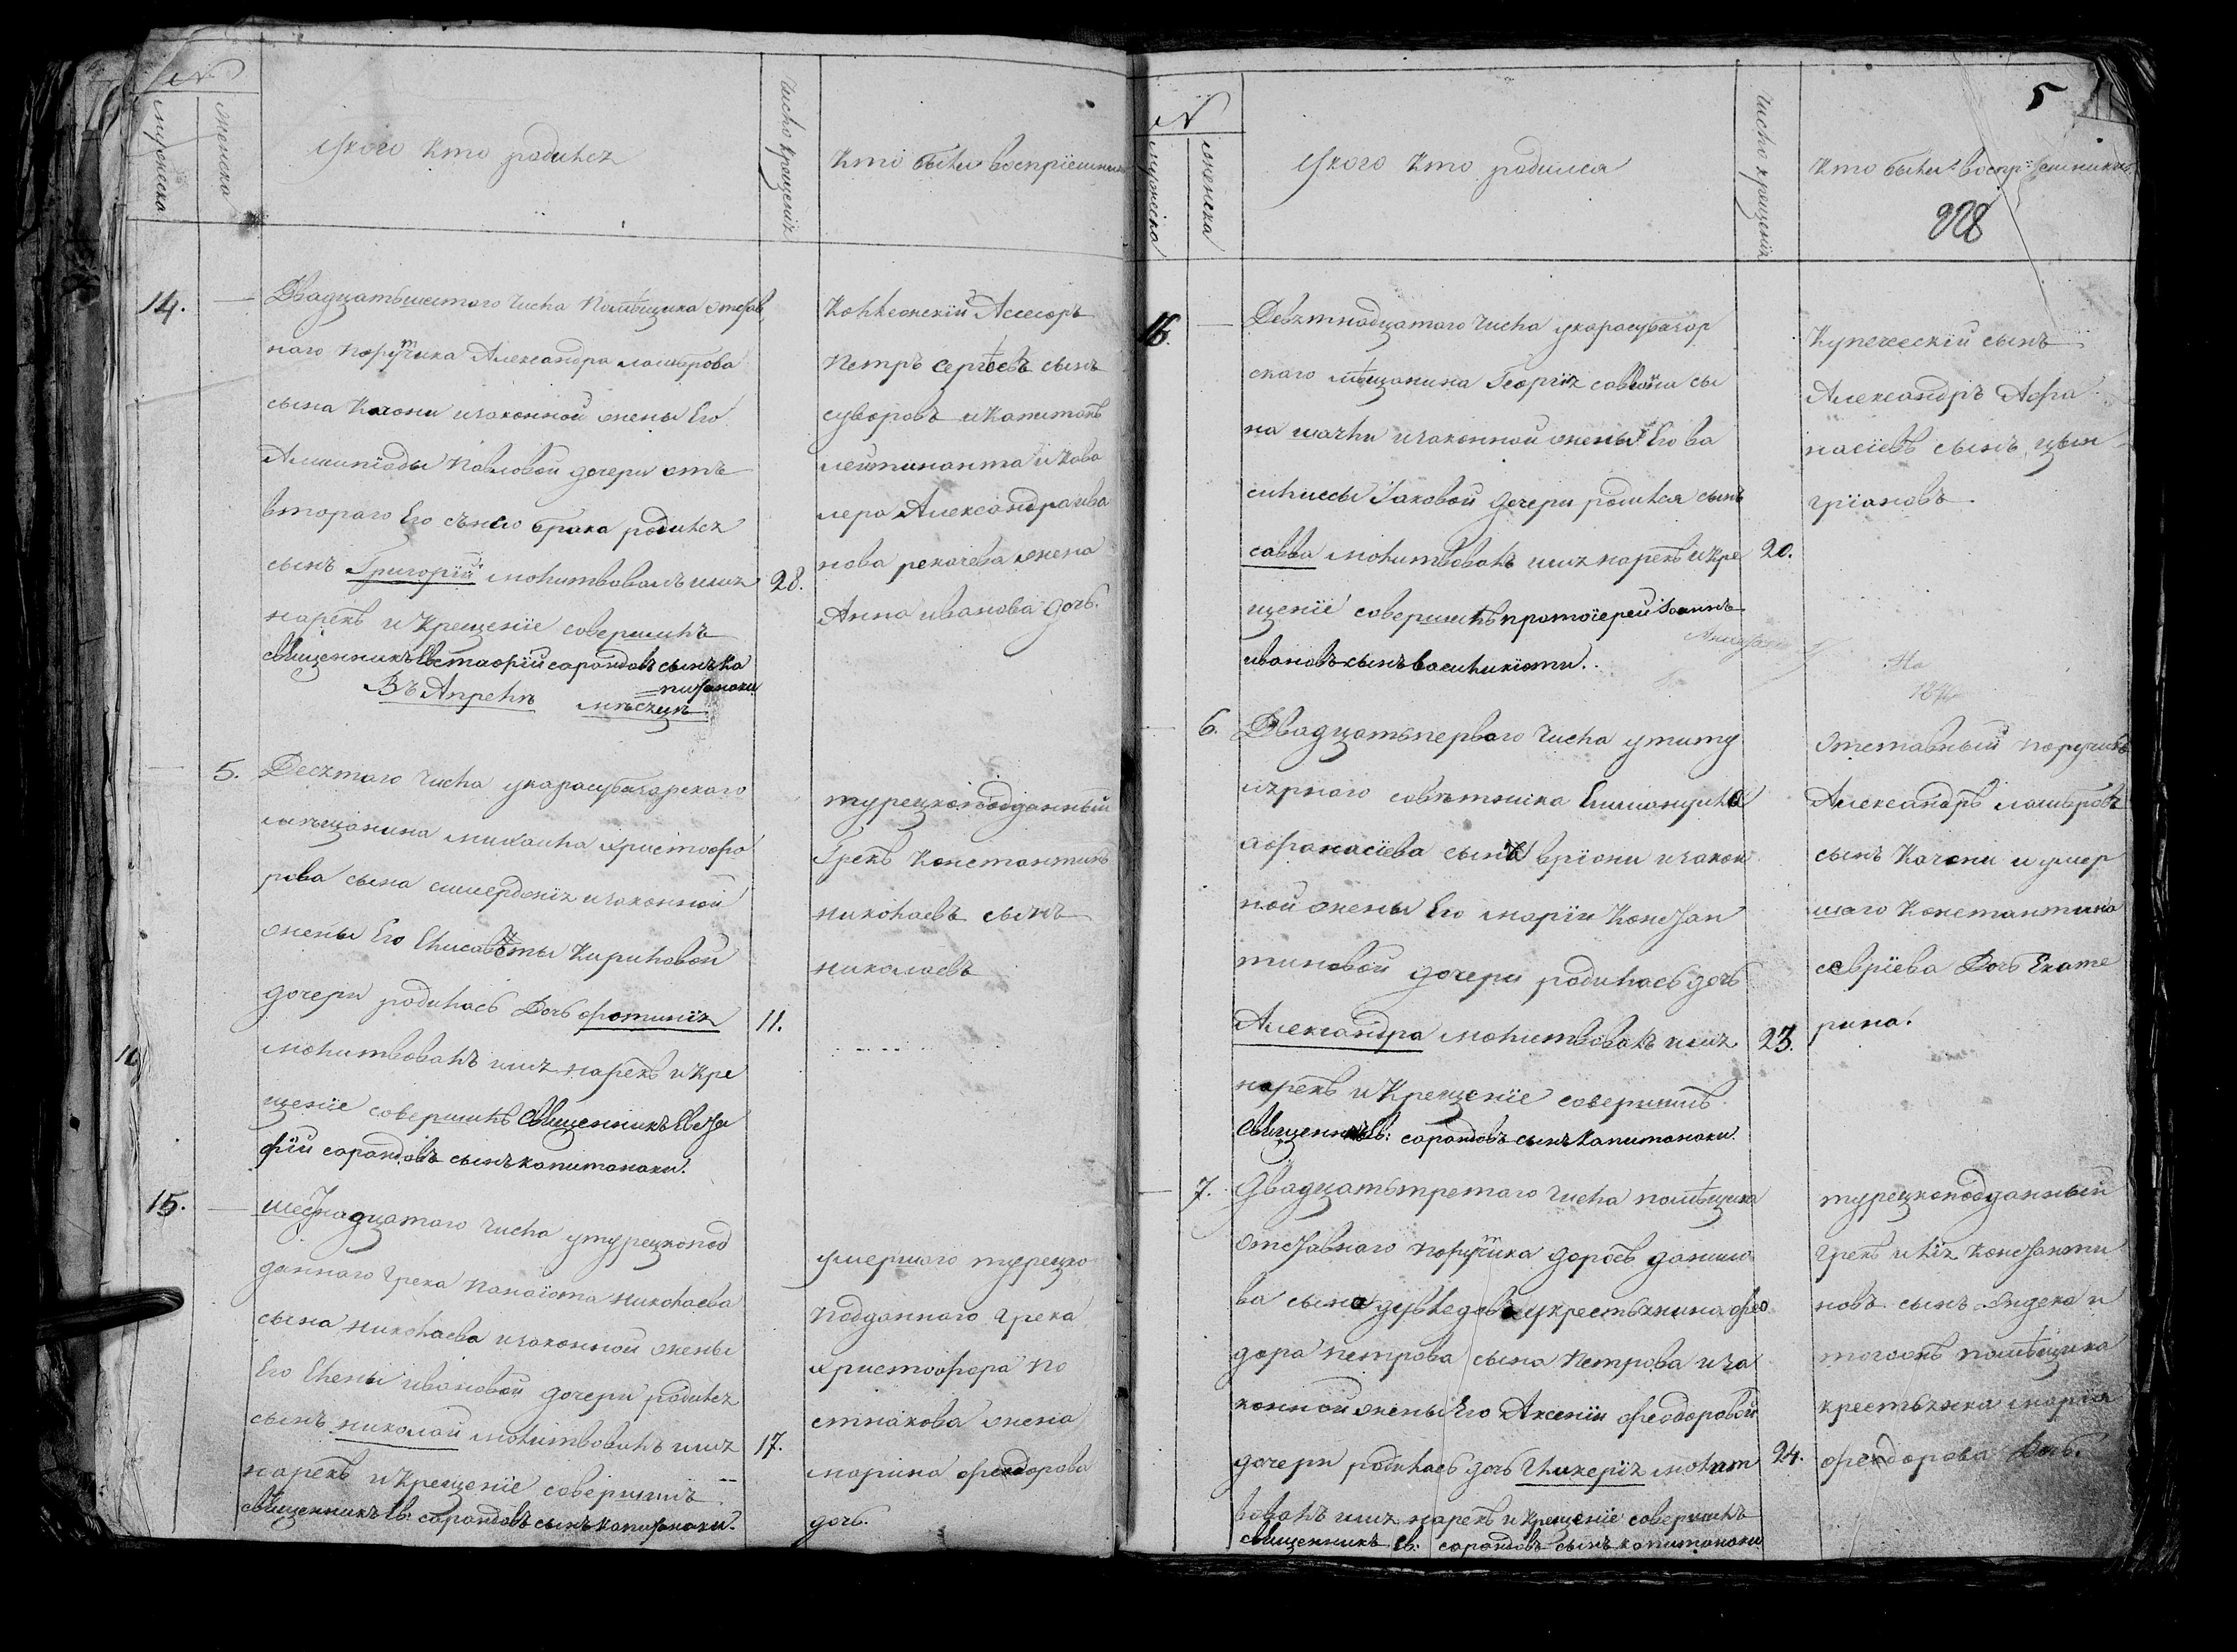 N
мужеска
женска
Укого Кто родился
Число крещенія
Кто были воспріемники
14.
Двадцатьшестаго числа Помѣщика отстав
наго порутчика Александра ламброва
сына Качони изаконной жены Его
павловой дочери отъ
втораго Его снею брака родился
сынъ Григорій молитвовалъ имя
28.
нарекъ и Крещеніе совершилъ
священникъ Евстафій сарандовъ сынъ ка
питанаки
Коллежскій Асессоръ
Петръ сергѣевъ сынъ
суворовъ и Капитанъ
лейтинанта и кава
лера Александра ива
нова жена
Анна иванова дочь.
Въ Апрелѣ мѣсяцѣ
5.
Десятаго числа укарасубазарскаго
мѣщанина михаила христофо
рова сына изаконной
жены Его Елисаветы Кириловой
дочери родилась Дочь фотинія
11.
молитвовалъ имя нарекъ и Кре
щеніе совершилъ Священникъ Евста
фій сарандовъ сынъ капитанаки.
турецкоподданный
Грекъ Константинъ
николаевъ сынъ
николаевъ
15.
шестнадцатаго числа утурецкопод
даннаго Грека Панаіота николаева
сына николаева изаконной жены
Его Елены ивановой дочери родился
сынъ николай молитвовалъ имя
17.
нарекъ и Крещеніе совершилъ
священникъ Ев: сарандовъ сынъ капитанаки.
умершаго турецко
подданнаго Грека
христофора по
стнакова жена
марина феодорова
дочь.
5
N
мужеска
женска
Укого Кто родился
Число крещенія
Кто были воспріемники
228
16.
Девятнадцатаго числа укарасубазар
скаго мѣщанина Георгія саввина сы
на изаконной жены Его ва
силиссы Іаковой дочери родился сынъ
савва молитвовалъ имя нарекъ и Кре
20.
щеніе совершилъ протоіерей Іоаннъ
ивановъ сынъ василикіоти.
Купеческій сынъ
Александръ Афа
насіевъ сынъ
6.
Двадцатьперваго числа утиту
лярнаго совѣтника Еммануила
афанасіева сына вріони изакон
ной жены Его маріи Констан
тиновой дочери родилась дочь
Александра молитвовалъ имя
23.
нарекъ и Крещеніе совершилъ
Священникъ Ев: сарандовъ сынъ капитанаки.
Отставный поручикъ
Александръ ламбровъ
сынъ Качони и умер
шаго Константина
севріева Дочь Екате
рина.
7.
Двадцатьтретаго числа помѣщика
отставнаго порутчика
сына укрестьянина фео
дора петрова сына Петрова иза
конной жены Его Аксеніи феодоровой
дочери родилась дочь Гликерія молит
24.
вовалъ имя нарекъ и крещеніе совершилъ
священникъ Ев: сарандовъ сынъ капитанаки
турецкоподданный
грекъ илія Константи
новъ сынъ и
тогожъ помѣщика
крестьянка марія
феодорова дочь.